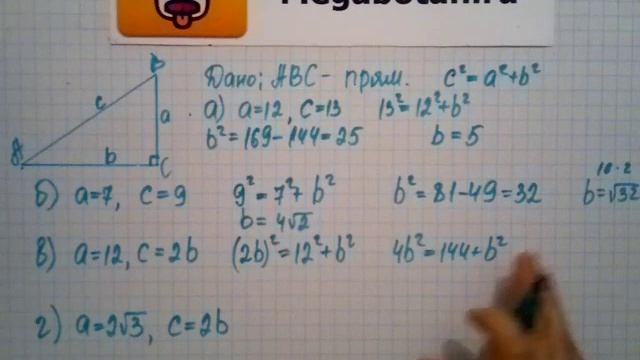 Megabotan.ru
B
Дано; ABC - прям. c² = a² + b²
c a
а) a = 12, c = 13 13² = 12² + b²
b² = 169 - 144 = 25 b = 5
A b C
16 · 2
б) a = 7, c = 9 9² = 7² + b² b² = 81 - 49 = 32 b = √32
b = 4√2
в) a = 12, c = 2b (2b)² = 12² + b² 4b² = 144 + b²
г) a = 2√3, c = 2b